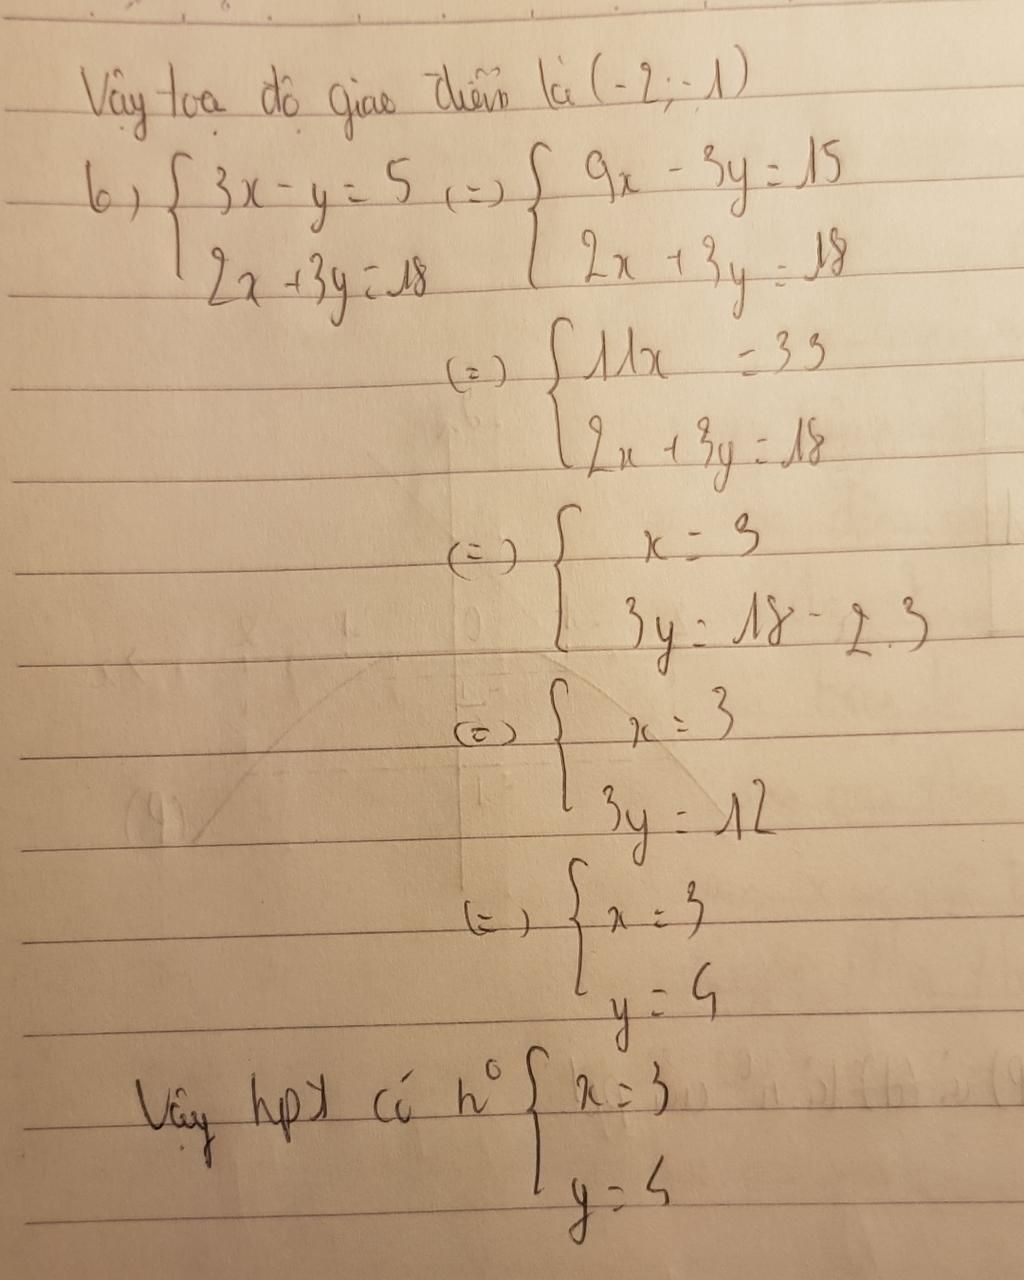 Vậy toạ độ giao điểm là (-2; -1)
b) { 3x - y = 5 (=) { 9x - 3y = 15
2x + 3y = 18 2x + 3y = 18
(=) { 11x = 33
2x + 3y = 18
(=) { x = 3
3y = 18 - 2.3
(=) { x = 3
3y = 12
(=) { x = 3
y = 4
Vậy hpt có n° { x = 3
y = 4